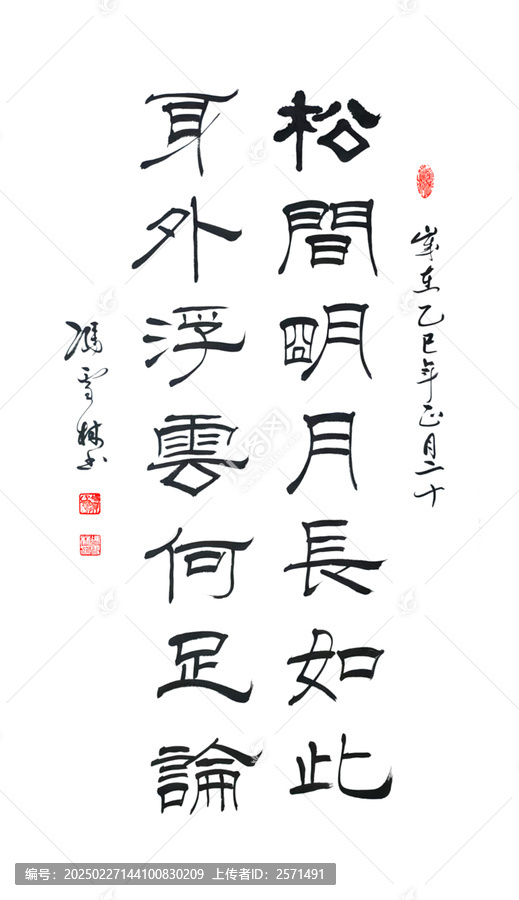 歲在乙巳年正月二十
松間明月長如此
耳外浮雲何足論
馮雪林书
编号：20250227144100830209 上传者ID：2571491